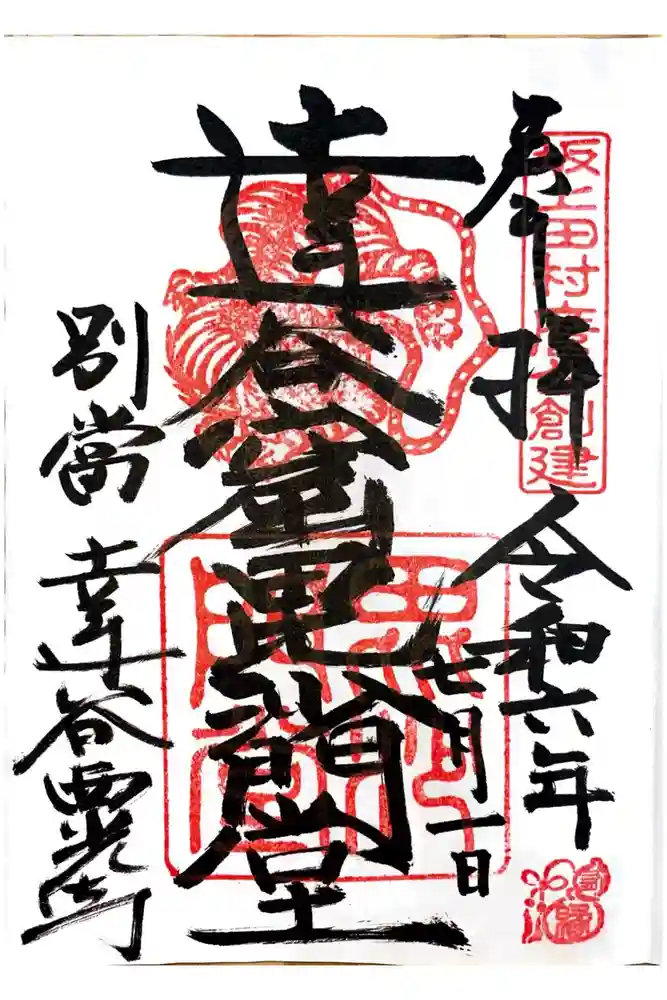 奉拝
坂上田村麿創建
令和六年
七月一日
達谷窟毘沙門堂
別當
達谷西光寺